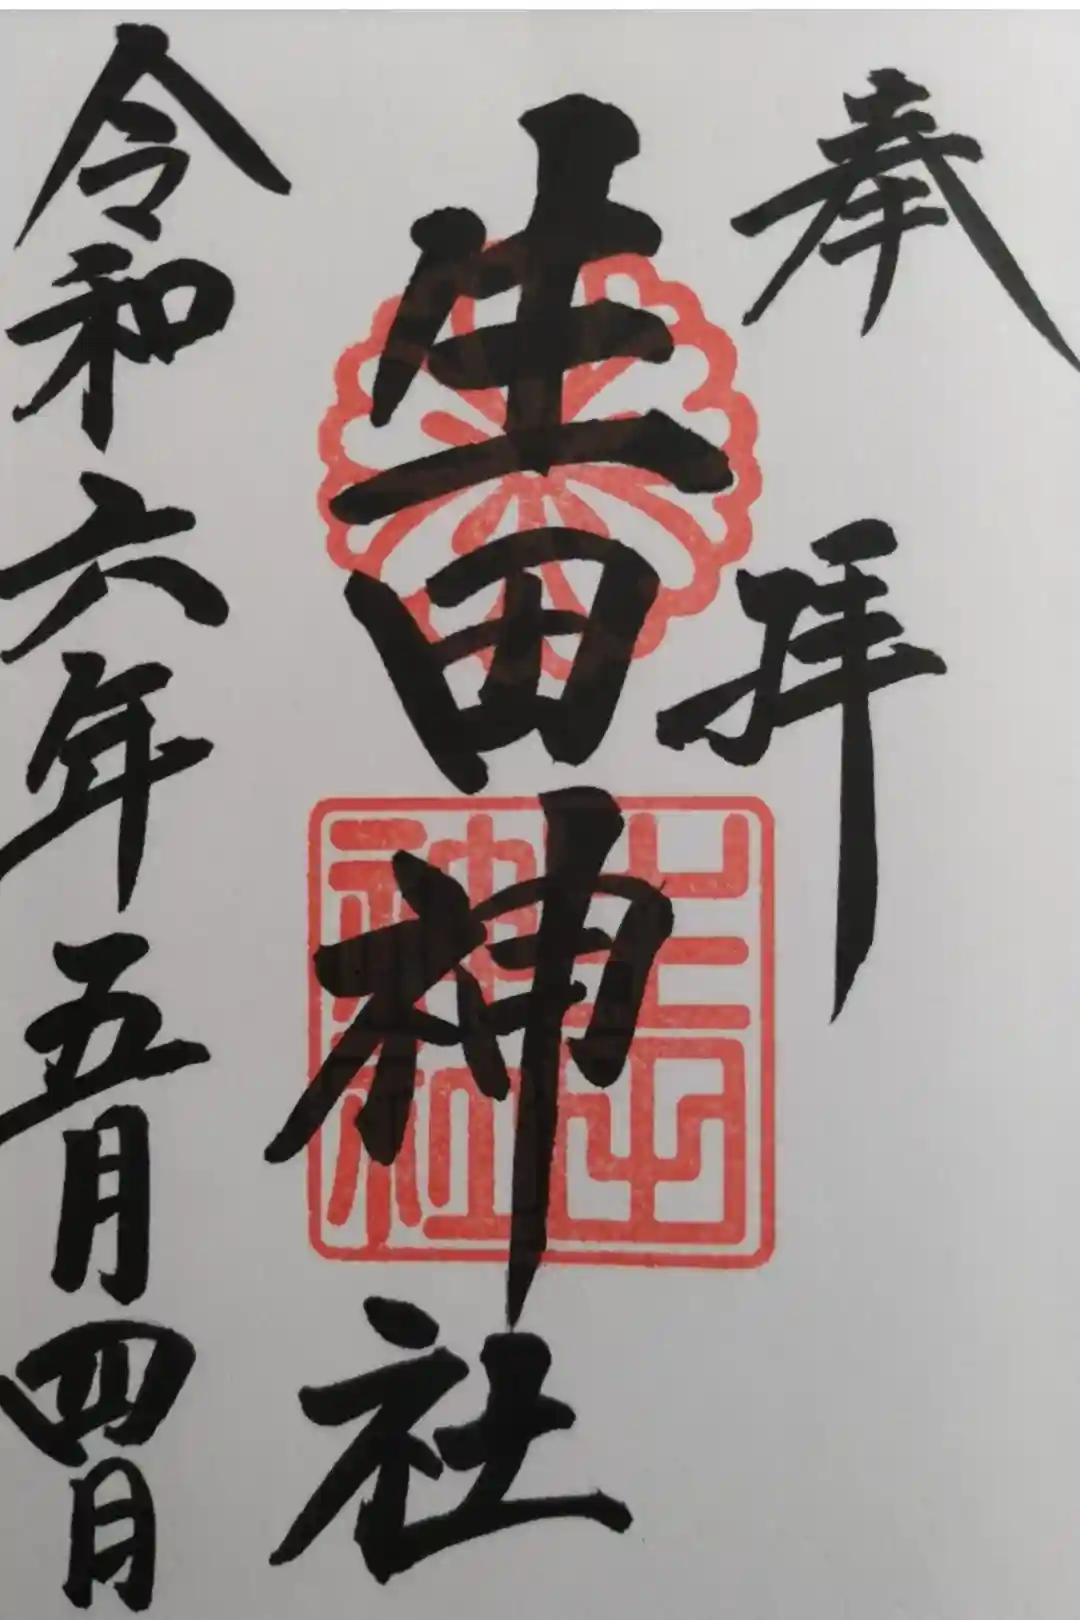 奉拝
生田神社
生田
神社
令和六年五月四日